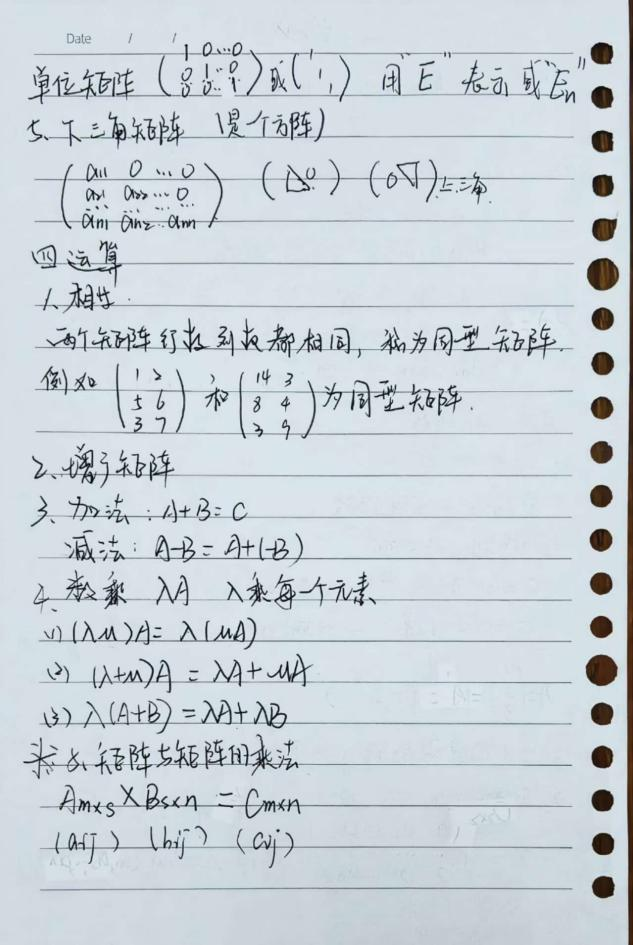 Date / /
单位矩阵 (1 0…0 0 1…0 0 0…1) 或 (1 1 1) 用"E"表示或"En"
5、下三角矩阵 (是个方阵)
(a11 0 … 0 a21 a22 … 0 … … … an1 an2 … ann) (0) (0) 上三角
四 运算
1、相等.
两个矩阵行数列数都相同, 称为同型矩阵.
例如 (1 2 5 6 3 7) 和 (14 3 8 4 3 9) 为同型矩阵.
2、矩阵
3、加法: A+B=C
减法: A-B=A+(-B)
4、数乘 λA λ乘每一个元素
(1) (λμ)A=λ(μA)
(2) (λ+μ)A=λA+μA
(3) λ(A+B)=λA+λB
※ 矩阵与矩阵的乘法
Am×s×Bs×n=Cm×n
(aij) (bij) (cij)